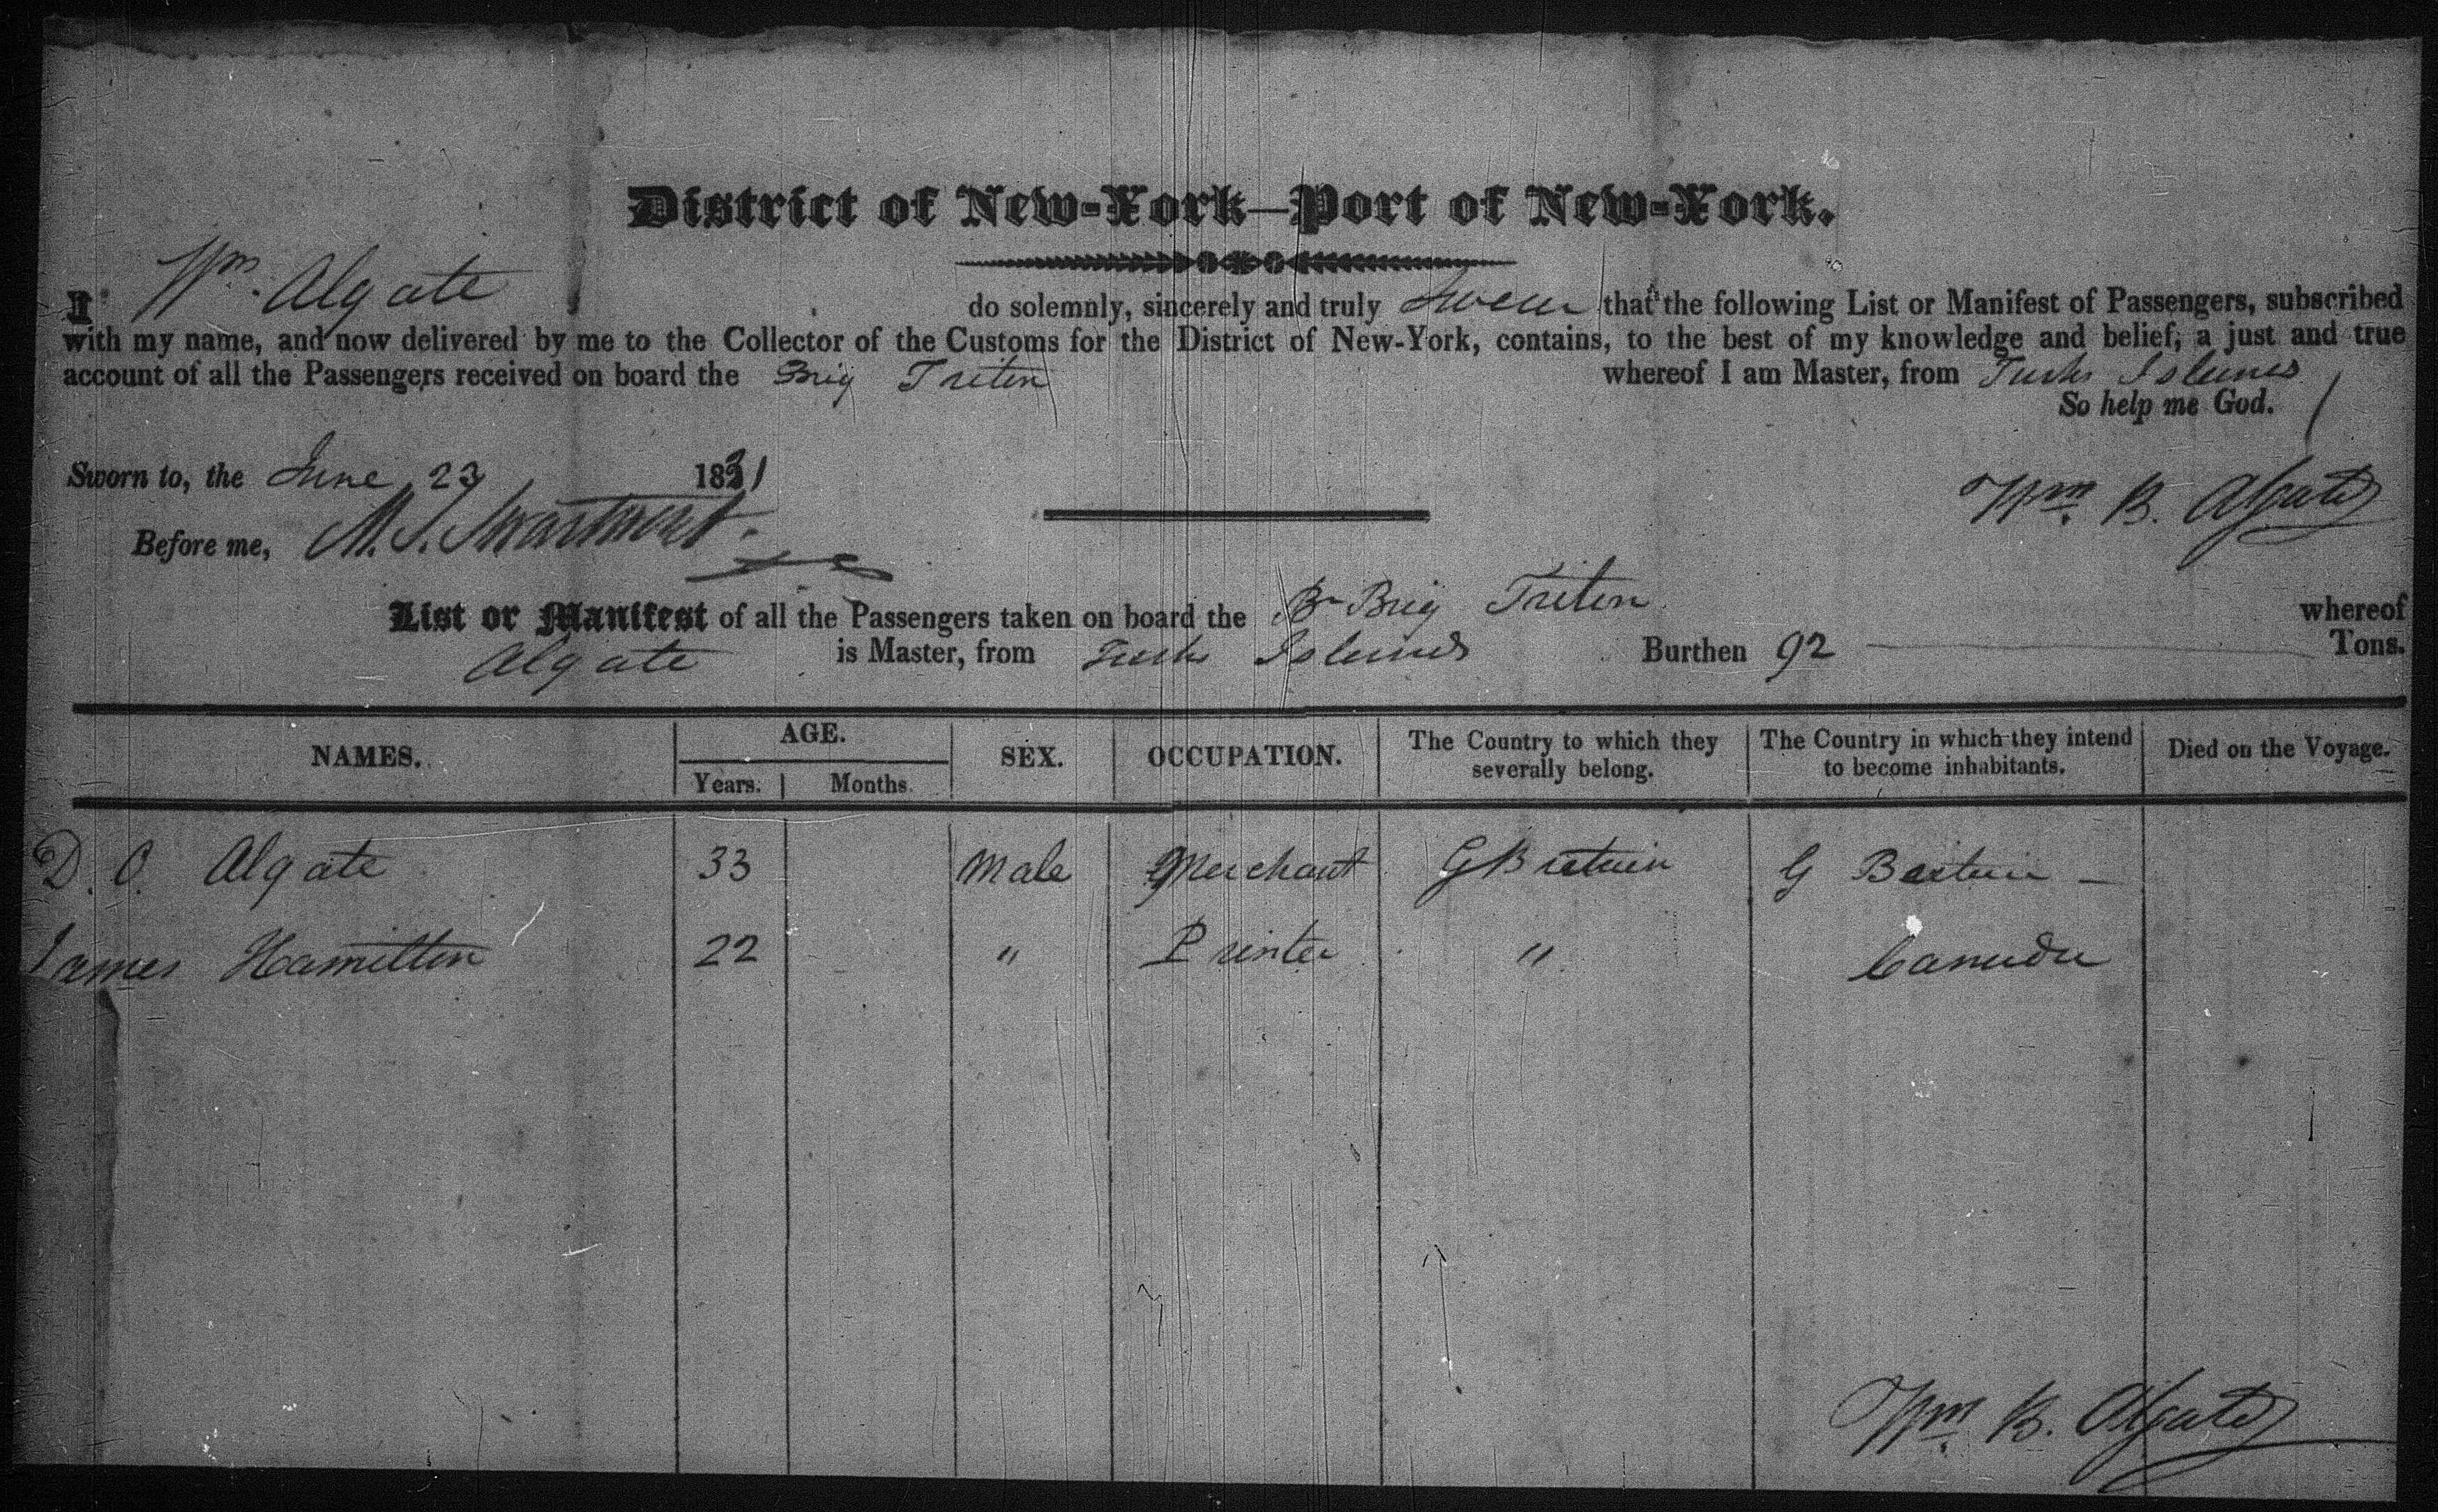 District of New-York—Port of New-York.
I Wm. Algate do solemnly, sincerely and truly swear that the following List or Manifest of Passengers, subscribed
with my name, and now delivered by me to the Collector of the Customs for the District of New-York, contains, to the best of my knowledge and belief, a just and true
account of all the Passengers received on board the Brig Triton whereof I am Master, from Turks Islands
So help me God.
Sworn to, the June 23 1831
Wm. B. Algate
Before me, M. S.
List or Manifest of all the Passengers taken on board the Br Brig Triton whereof
Algate is Master, from Turks Islands Burthen 92 Tons.
NAMES. AGE. SEX. OCCUPATION. The Country to which they severally belong. The Country in which they intend to become inhabitants. Died on the Voyage.
Years. Months.
D. O. Algate 33 Male Merchant G Britain G Britain —
James Hamilton 22 " Printer " Canada
Wm. B. Algate